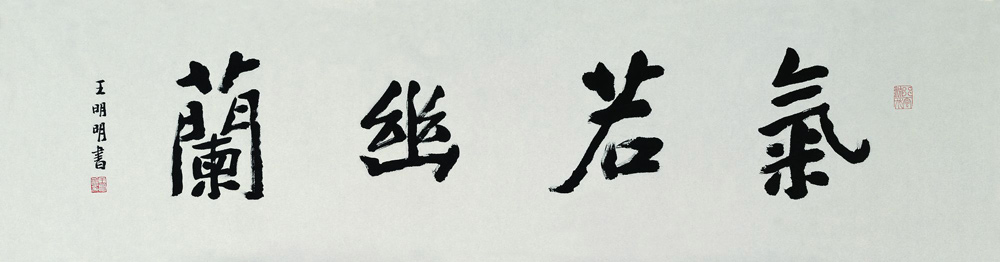 氣若幽蘭
王明明書